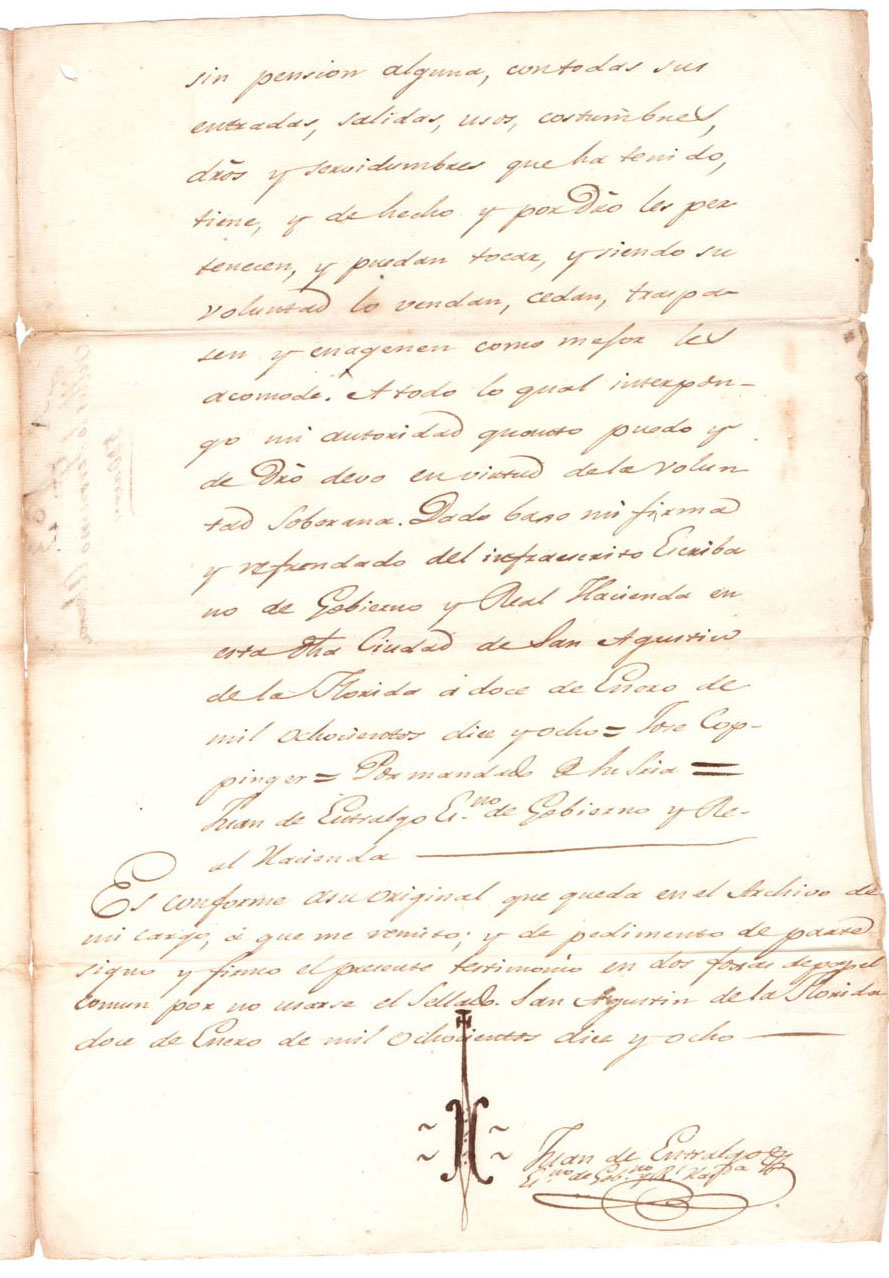 sin pension alguna, con todas sus
entradas, salidas, usos, costumbres,
dr̃os y servidumbres que ha tenido,
tiene, y de hecho y por Dr̃o les per
tenecen, y puedan tocar, y siendo su
voluntad lo vendan, cedan, traspa-
sen y enagenen como mejor les
acomode. A todo lo qual interpon-
go mi autoridad quanto puedo y
de Dr̃o devo en virtud de la volun
tad Soberana. Dado baxo mi firma
y refrendado del infraescrito Escriba
no de Gobierno y Real Hacienda en
esta dha Ciudad de San Agustin
de la Florida á doce de Enero de
mil ochocientos diez y ocho = Jose Cop-
pinger = Por mandado de su Sria =
Juan de Entralgo Es.no de Gobierno y Re-
al Hacienda
Es conforme a su original que queda en el Archivo de
mi cargo, á que me remito; y de pedimento de parte
signo y firmo el presente testimonio en dos foxas de papel
comun por no usarse el Sellado. San Agustin de la Florida
doce de Enero de mil ochocientos diez y ocho
Juan de Entralgo
Es.no de Gob.no y R.l Haz.da